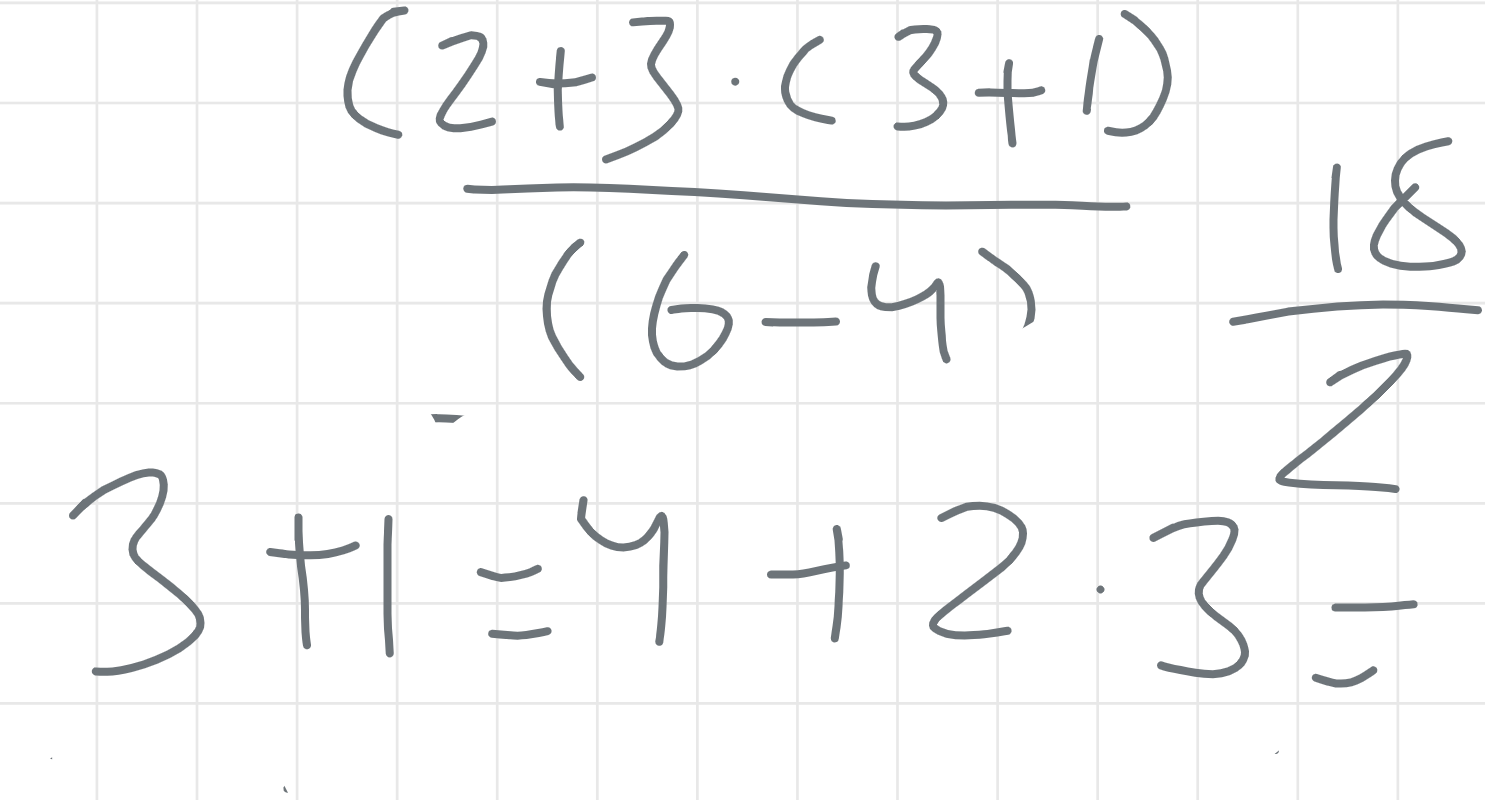 (2+3·(3+1)
(6-4)
18
2
-
3+1=4+2·3=